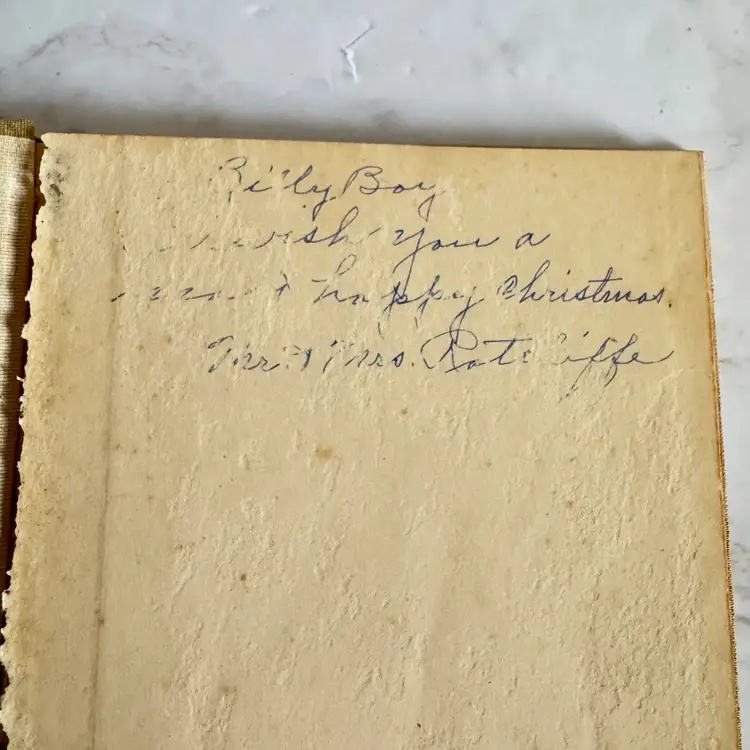 Billy Boy
wish you a
& happy Christmas.
Mr. & Mrs. Ratcliffe